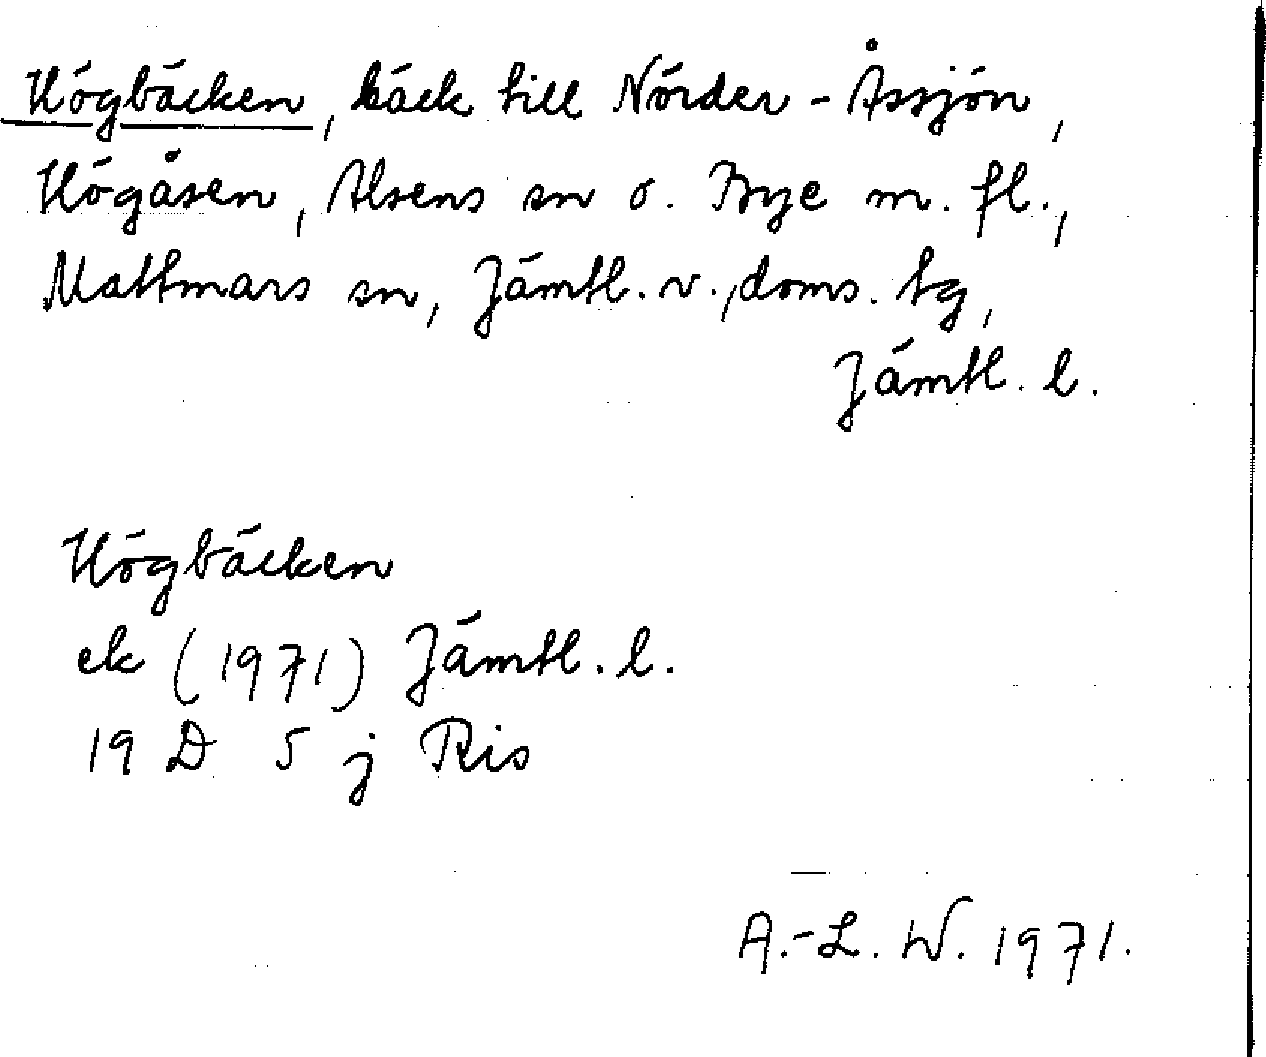 Högbäcken, bäck till Nörder-Åssjön,
Högåsen, Alsens sn o. Bye m. fl.,
Mattmars sn, Jämtl. v., doms. tg,
Jämtl. l.
Högbäcken
ek (1971) Jämtl. l.
19 D 5 j Ris
A.-L. W. 1971.